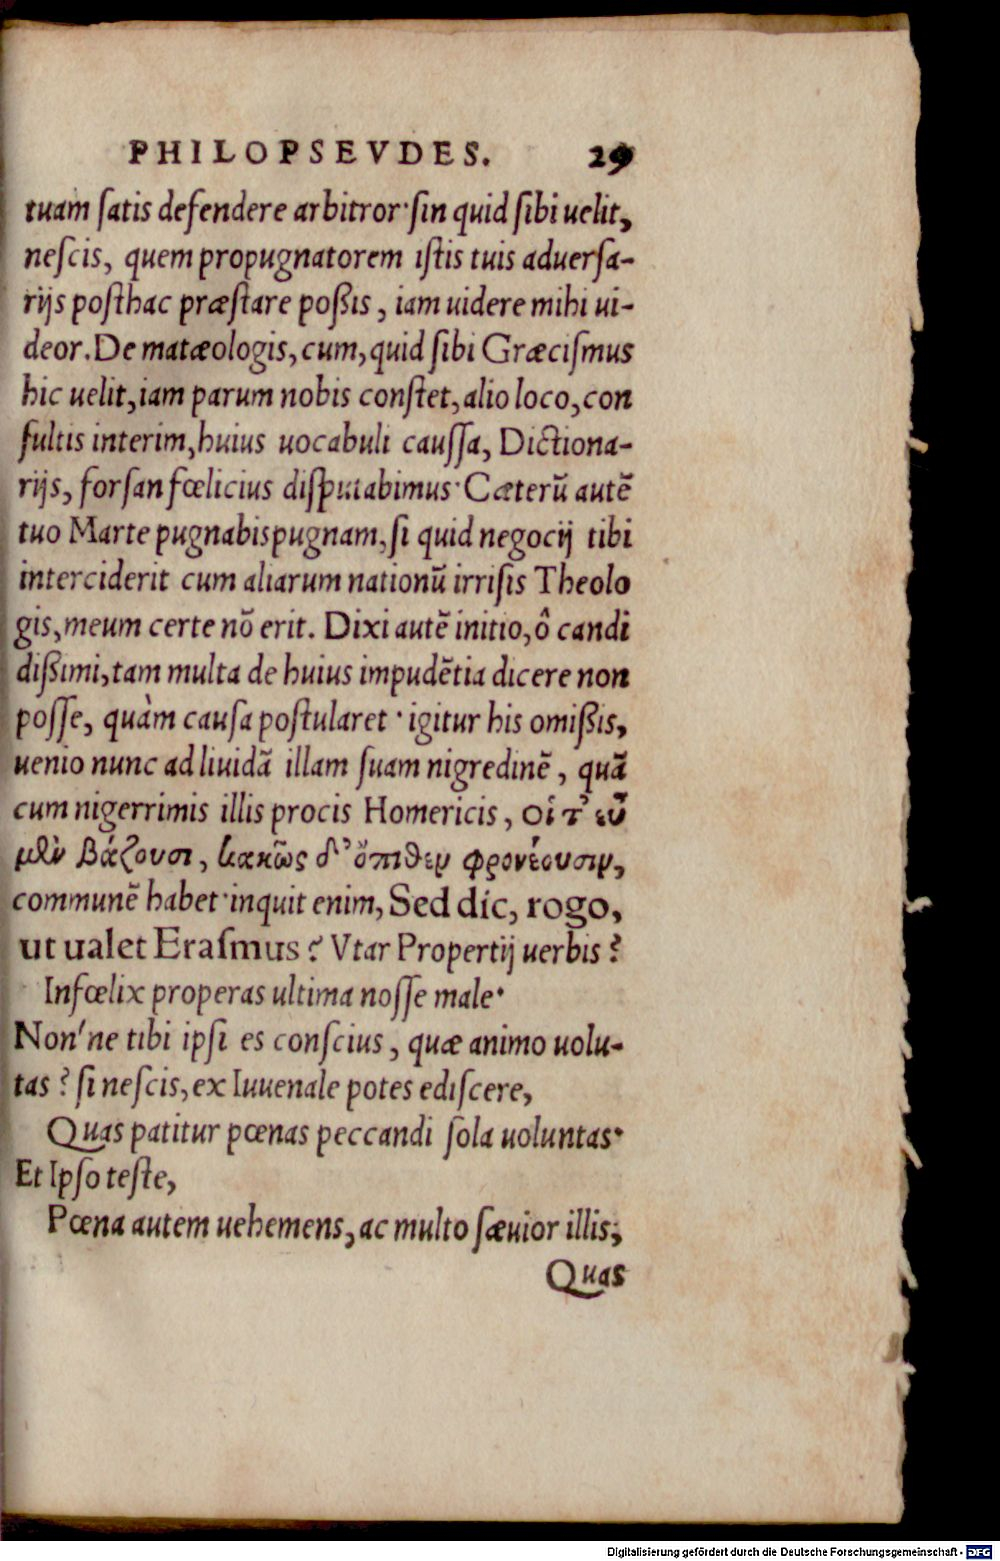 PHILOPSEVDES. 29
tuam ſatis defendere arbitror·ſin quid ſibi uelit,
neſcis, quem propugnatorem iſtis tuis aduerſa-
rijs poſthac præſtare poßis, iam uidere mihi ui-
deor. De matæologis, cum, quid ſibi Græciſmus
hic uelit, iam parum nobis conſtet, alio loco, con
ſultis interim, huius uocabuli cauſſa, Dictiona-
rijs, forſan fœlicius diſputabimus· Cæterū autē
tuo Marte pugnabis pugnam, ſi quid negocij tibi
interciderit cum aliarum nationū irriſis Theolo
gis, meum certe nō erit. Dixi autē initio, ô candi
dißimi, tam multa de huius impudētia dicere non
poſſe, quàm cauſa poſtularet· igitur his omißis,
uenio nunc ad liuidā illam ſuam nigredinē, quā
cum nigerrimis illis procis Homericis, οἵ τ᾽ εὖ
μὲν βάζουσι, κακῶς δ᾽ ὄπιθεν φρονέουσιν,
communē habet·inquit enim, Sed dic, rogo,
ut ualet Eraſmus? Vtar Propertij uerbis?
Infœlix properas ultima noſſe male·
Non'ne tibi ipſi es conſcius, quæ animo uolu-
tas? ſi neſcis, ex Iuuenale potes ediſcere,
Quas patitur pœnas peccandi ſola uoluntas·
Et Ipſo teſte,
Pœna autem uehemens, ac multo ſæuior illis,
Quas
Digitalisierung gefördert durch die Deutsche Forschungsgemeinschaft - DFG